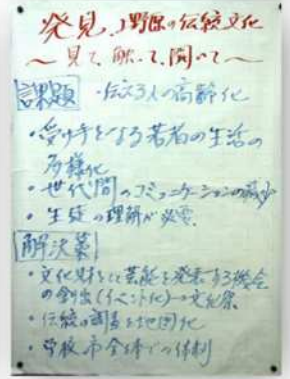 発見、J野原の伝統文化
～見て、触って、聞いて～
課題 ・伝える人の高齢化
・受け手となる若者の生活の
多様化
・世代間のコミュニケーションの減少
・生徒の理解が必要
解決策
・文化財として芸能を発表する機会
の創出(イベント化)→文化祭
・伝統の調査を地図化
・学校、市全体での体制